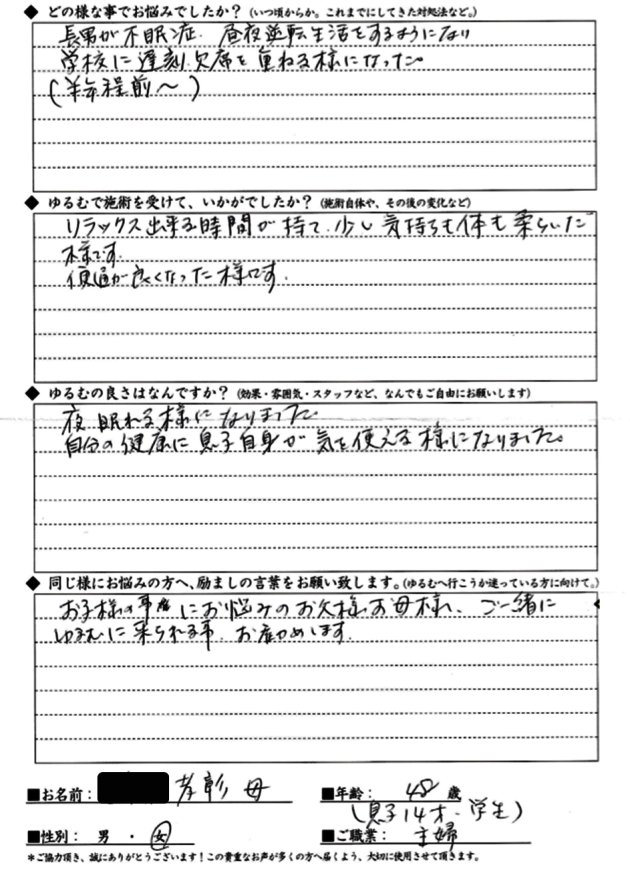 ◆ どの様な事でお悩みでしたか？（いつ頃からか。これまでにしてきた対処法など。）
長男が不眠症．昼夜逆転生活をするようになり
学校に遅刻欠席を重ねる様になった。
（半年程前〜）
◆ ゆるむで施術を受けて、いかがでしたか？（施術自体や、その後の変化など）
リラックス出来る時間が持て、少し気持ちも体も柔らいだ
様です．
便通が良くなった様です．
◆ ゆるむの良さはなんですか？（効果・雰囲気・スタッフなど、なんでもご自由にお願いします）
夜眠れる様になりました。
自分の健康に息子自身が気を使える様になりました。
◆ 同じ様にお悩みの方へ、励ましの言葉をお願い致します。（ゆるむへ行こうか迷っている方に向けて。）
お子様の事にお悩みのお父様お母様、ご一緒に
ゆるむに来られる事．お勧めします．
■お名前： 孝彰 母
■年齢： 48 歳
（息子14才・学生）
■性別： 男 ・ 女
■ご職業： 主婦
＊ご協力頂き、誠にありがとうございます！この貴重なお声が多くの方へ届くよう、大切に使用させて頂きます。